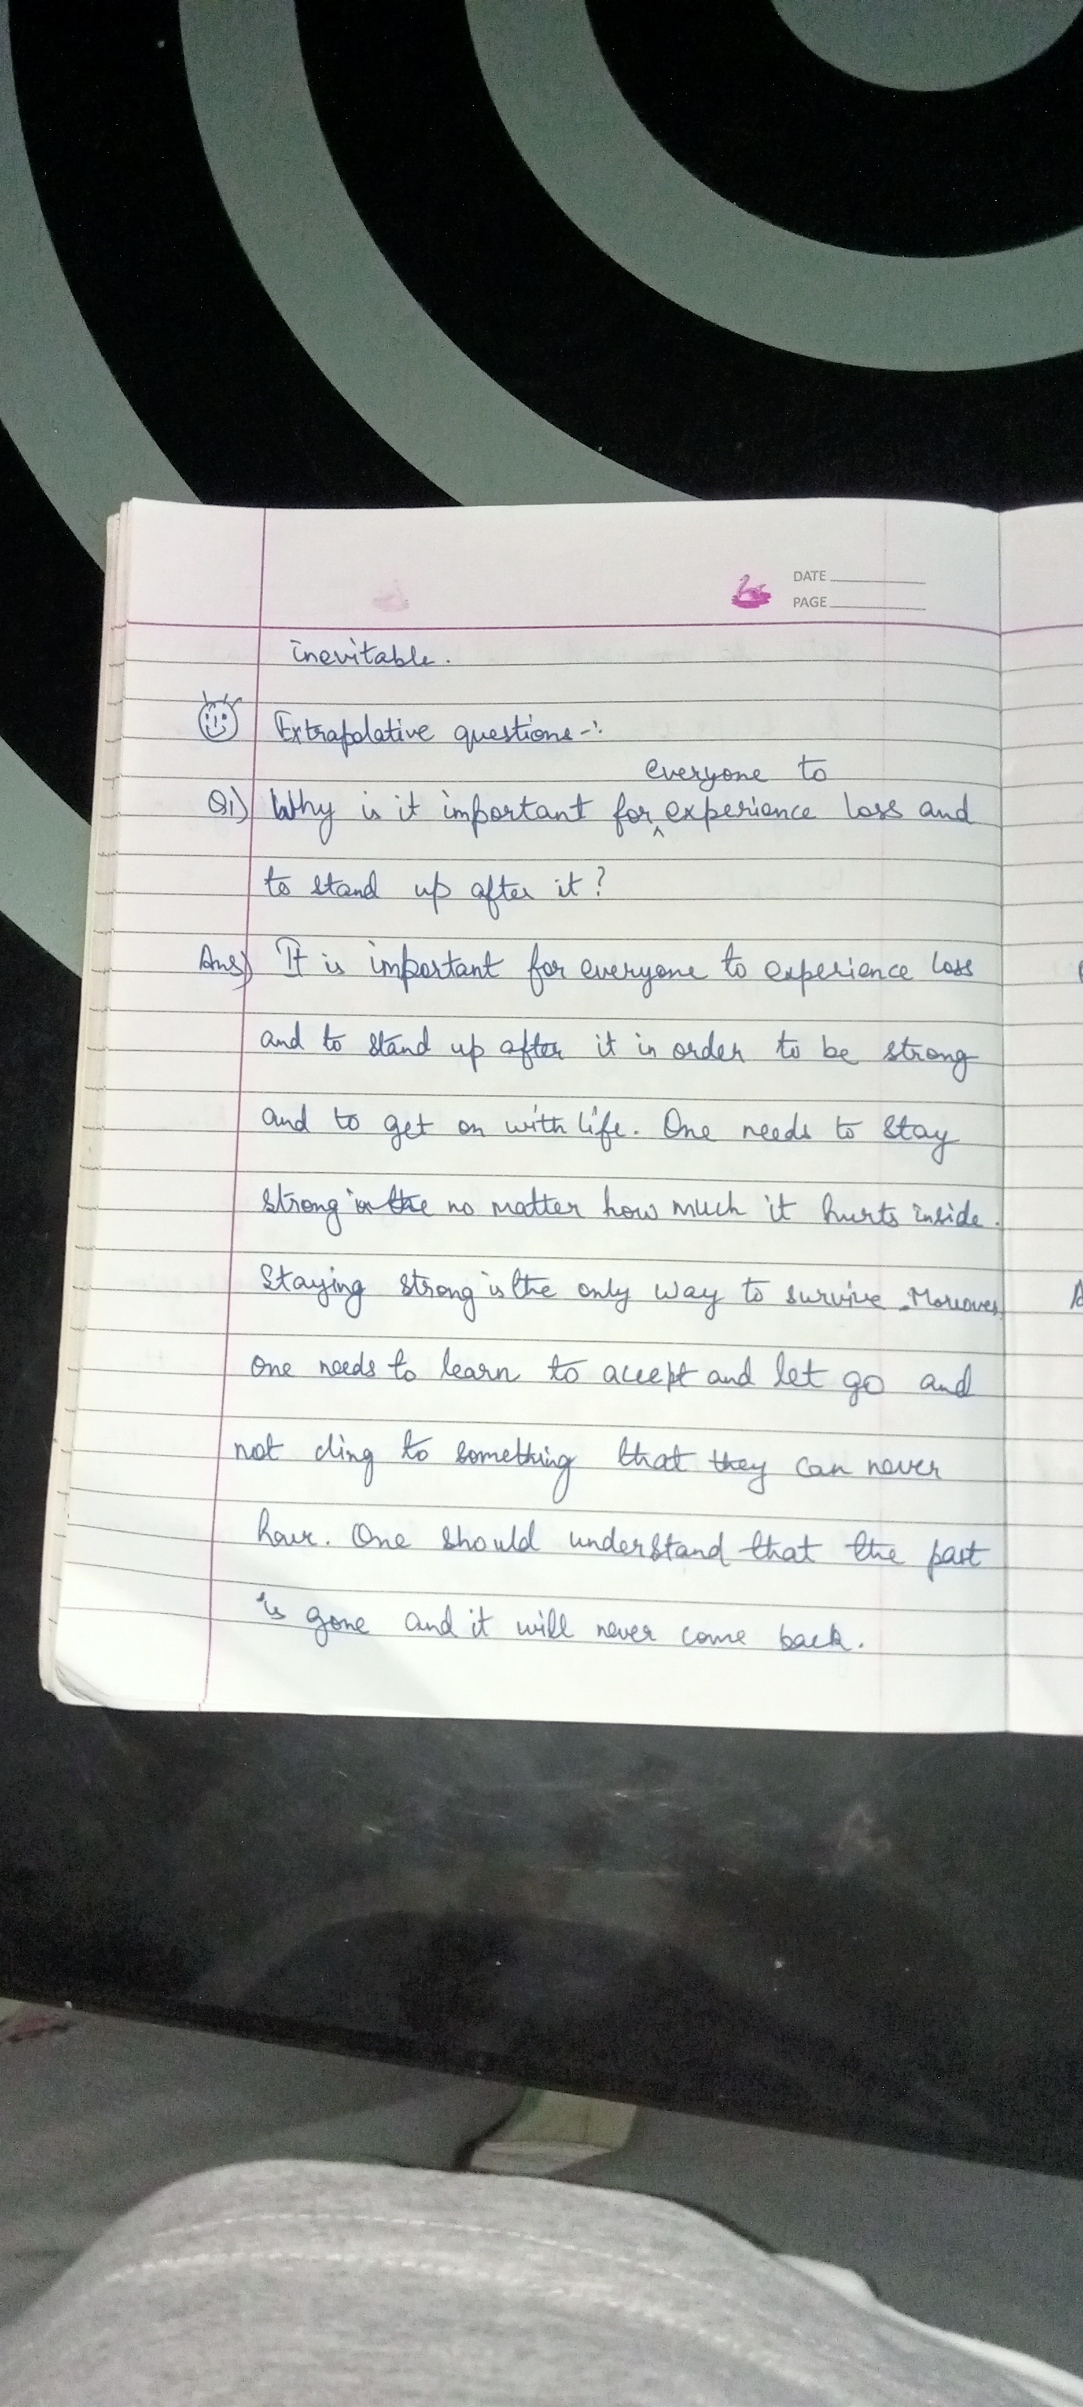 DATE
PAGE
inevitable.
Extrapolative questions -:
everyone to
Q1) Why is it important for ^ experience loss and
to stand up after it?
Ans) It is important for everyone to experience loss
and to stand up after it in order to be strong
and to get on with life. One needs to stay
strong in the no matter how much it hurts inside.
Staying strong is the only way to survive. Moreover,
one needs to learn to accept and let go and
not cling to something that they can never
have. One should understand that the past
is gone and it will never come back.